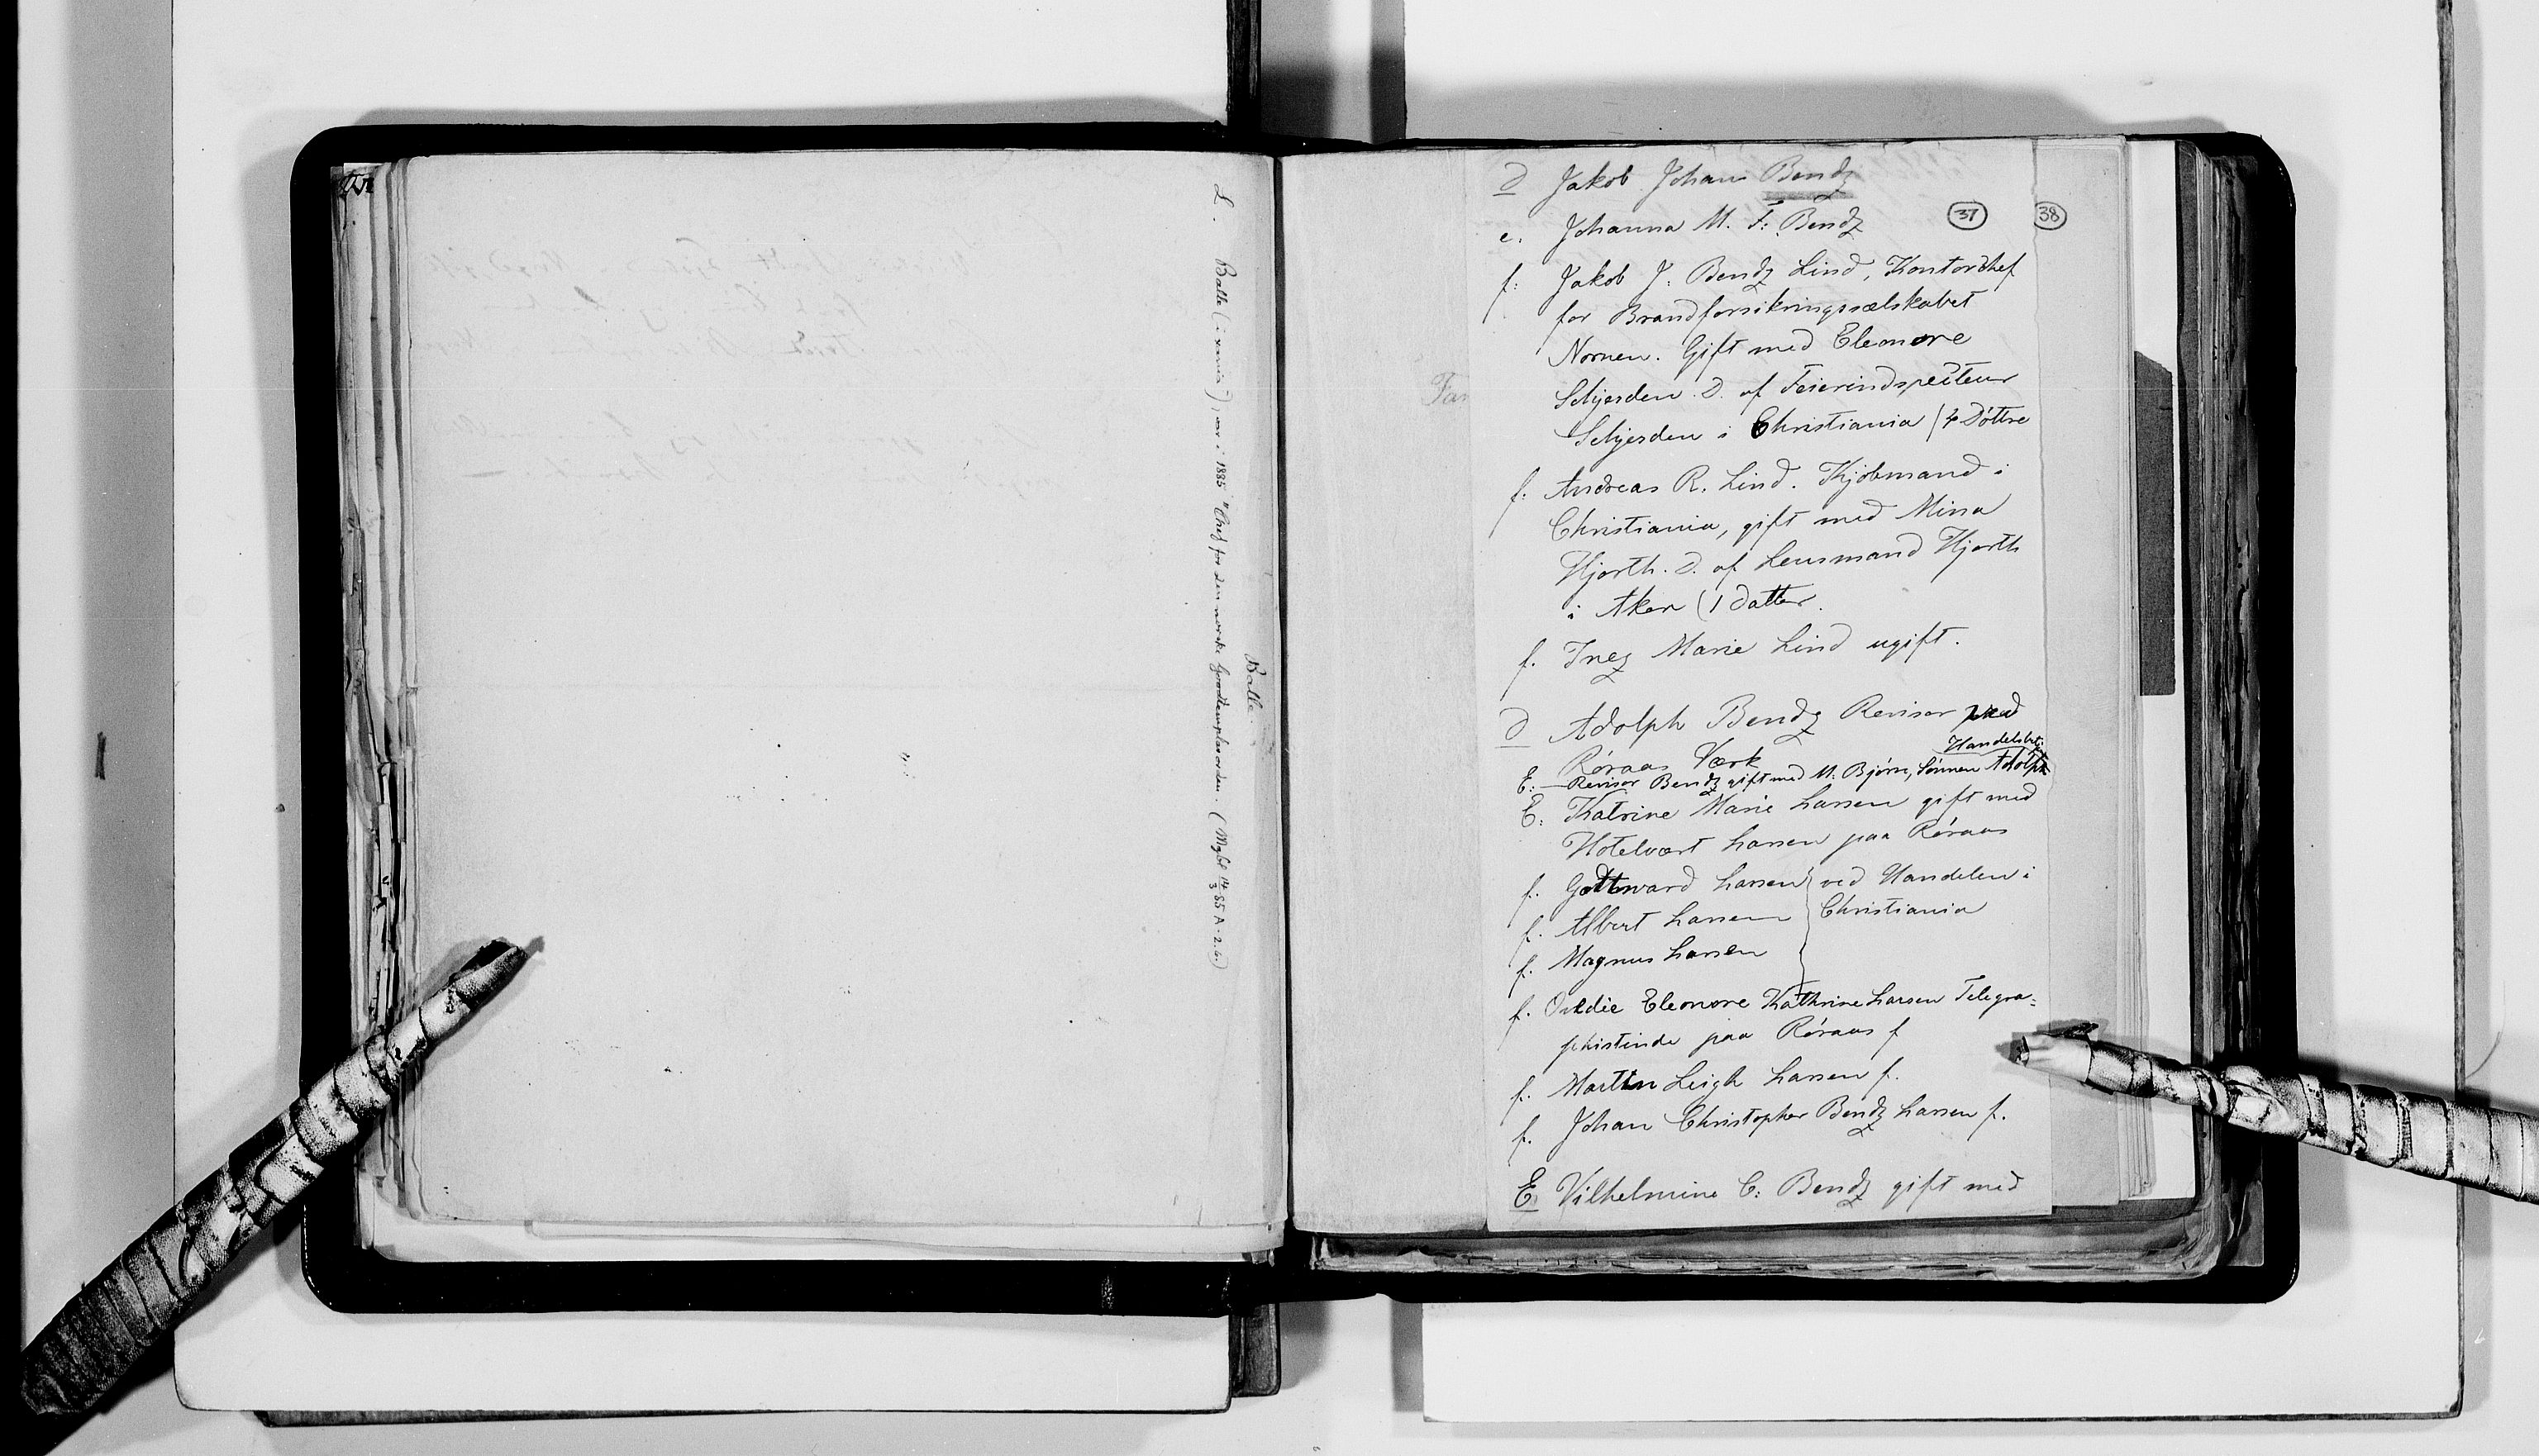 Balle.
L. Balle (i xania), var i 1885 "Chef for den norske Goodtemplarorden. (Mgbl 14/3 85 A. 2. 6.)
D Jakob Johan Bendz
37 38
e. Johanna M. F: Bendz
f: Jakob J. Bendz Lind, Kontorchef
for Brandforsikringsselskabet
Nornen. Gift med Eleonore
Schjerden. D. af Feierindspecteur
Schjerden i Christiania (4 Döttre
f. Andreas R. Lind. Kjøbmand i
Christiania, gift med Mina
Hjorth. D. af Lensmand Hjorth
i Aker (1 datter.
f. Inez Marie Lind ugift.
D Adolph Bendz Revisor ved
Röraas Værk
Handelsbetj:
E: — Revisor Bendz gift med M. Bjørn, Sönnen Adolph
E: Katrine Marie Larsen gift med
Hotelvært Larsen paa Röraas
f. Gottward Larsen ved Handelen i
f. Albert Larsen Christiania
f. Magnus Larsen
f. Eleonore Kathrine Larsen Telegra=
phistinde paa Röraas f
f. Martin Leigh Larsen f.
f. Johan Christopher Bendz Larsen f.
E Vilhelmine C: Bendz gift med